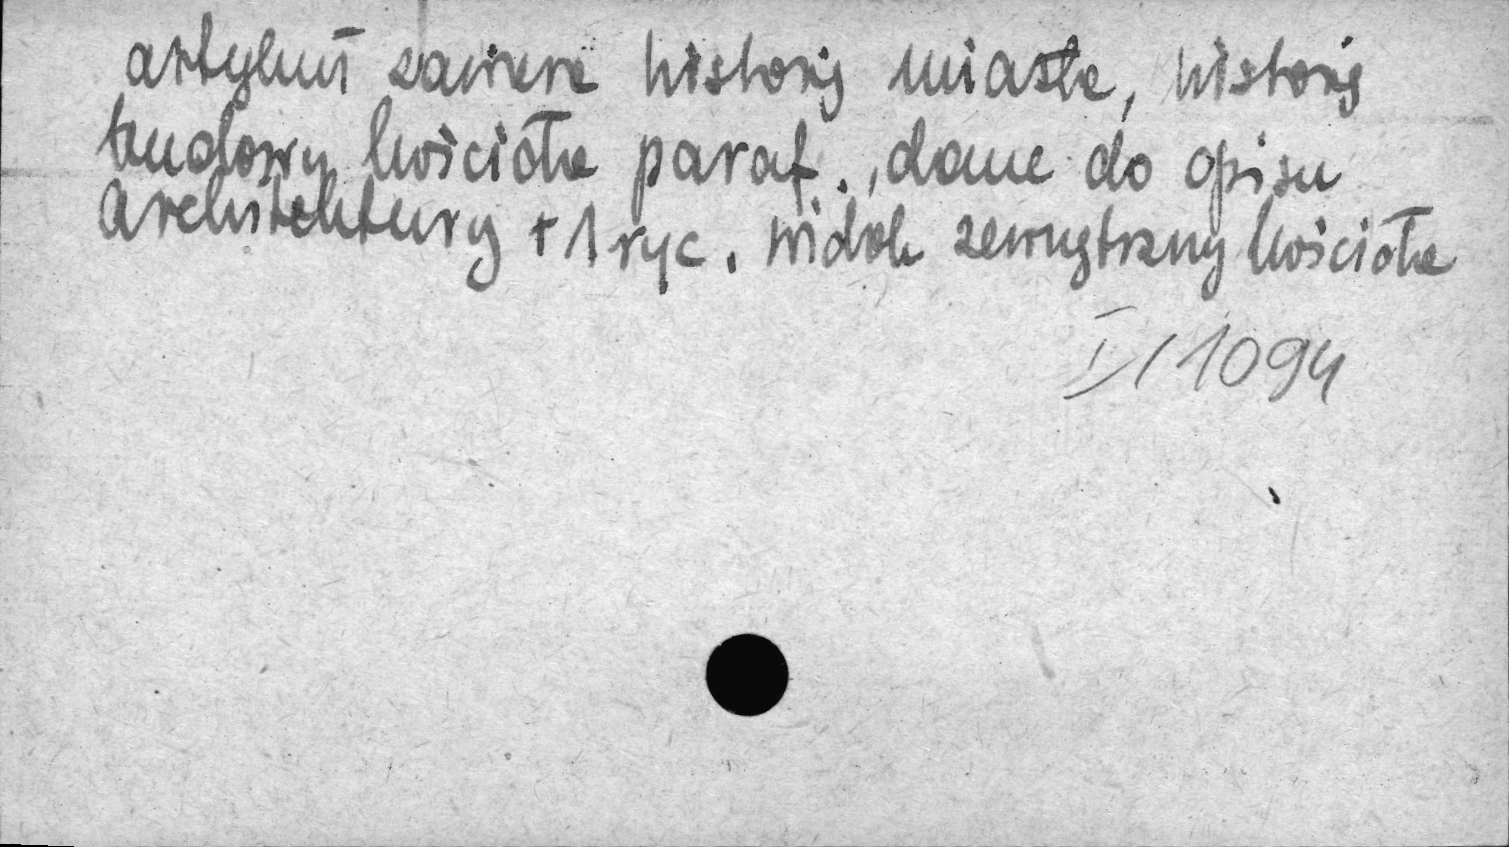 artykuł zawiera historię miasta, historię
budowy kościoła paraf., dane do opisu
architektury + 1 ryc. widok zewnętrzny kościoła
I/1094